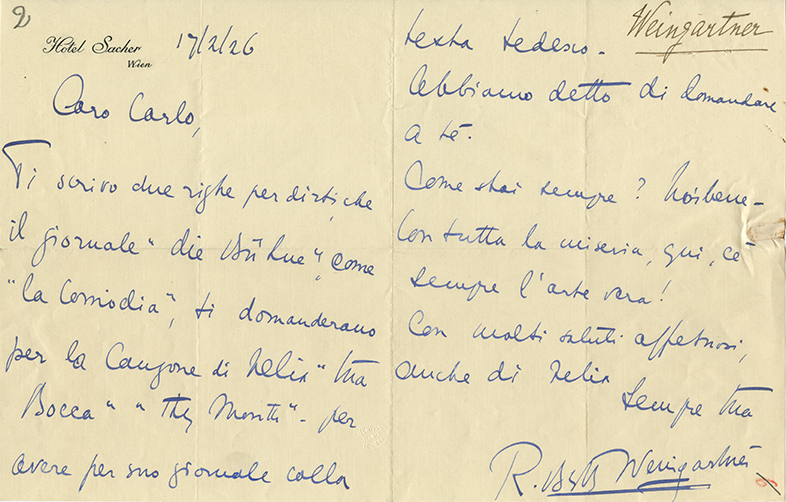 2
Hotel Sacher
Wien
17/2/26
Caro Carlo,
Ti scrivo due righe per dirti, che
il giornale "die Bühne", come
"la Comödia", ti domanderano
per la Canzone di Delia "tua
Bocca" "Thy Mouth" - per
avere per suo giornale colla
Weingartner
texta tedesco -
Abbiamo detto di domandare
a te.
Come stai sempre? Noi bene -
Con tutta la miseria, qui, c'é
sempre l'arte vera!
Con molti saluti affetuosi,
anche di Delia
Sempre tua
R. Weingartner